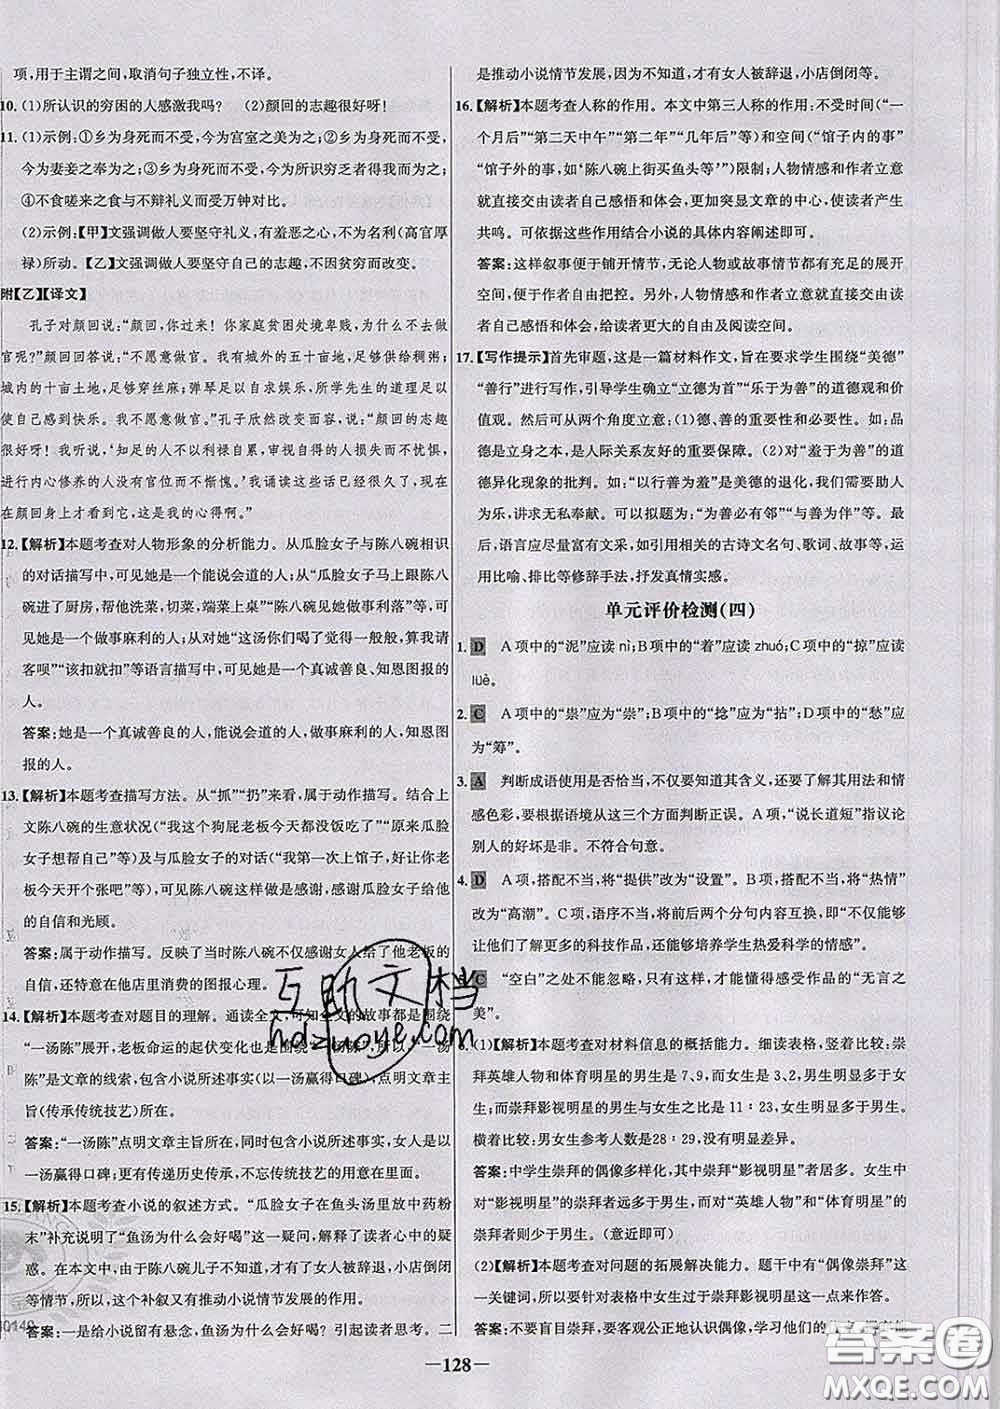 项,用于主谓之间,取消句子独立性,不译。
10. (1)所认识的穷困的人感激我吗? (2)颜回的志趣很好呀!
11. (1)示例:①乡为身死而不受,今为宫室之美为之;②乡为身死而不受,
今为妻妾之奉为之;③乡为身死而不受,今为所识穷乏者得我而为之;
④不食嗟来之食与不辩礼义而受万钟对比。
(2)示例:【甲】文强调做人要坚守礼义,有羞恶之心,不为名利(高官厚
禄)所动。【乙】文强调做人要坚守自己的志趣,不因贫穷而改变。
附【乙】【译文】
孔子对颜回说:“颜回,你过来!你家庭贫困处境卑贱,为什么不做
官呢?”颜回回答说:“不愿意做官。我有城外的五十亩地,足够供给稠粥;
城内的十亩土地,足够穿丝麻;弹琴足以自求娱乐,所学先生的道理足以
使自己感到快乐。我不愿意做官。”孔子欣然改变面容,说:“颜回的志趣
很好呀!我听说,‘知足的人不以利禄自累,审视自得的人损失而不忧惧,
进行内心修养的人没有官位而不惭愧。’我诵读这些话已经很久了,现在
在颜回身上才看到它,这是我的心得啊。”
12. 【解析】本题考查对人物形象的分析能力。从瓜脸女子与陈八碗相识
的对话描写中,可见她是一个能说会道的人;从“瓜脸女子马上跟陈八
碗进了厨房,帮他洗菜,切菜,端菜上桌”“陈八碗见她做事利落”等,可
见她是一个做事麻利的人;从对她“这汤你们觉得一般般,算我请
客呗”“该扣就扣”等语言描写中,可见她是一个真诚善良、知恩图报的
人。
答案:她是一个真诚善良的人,能说会道的人,做事麻利的人,知恩图
报的人。
13. 【解析】本题考查描写方法。从“抓”“扔”来看,属于动作描写。结合上
文陈八碗的生意状况(“我这个狗屁老板今天都没饭吃了”“原来瓜脸
女子想帮自己”等)及与瓜脸女子的对话(“我第一次上馆子,好让你老
板今天开个张吧”等),可见陈八碗这样做是感谢,刺激瓜脸女子给他
的自信和光顾。
答案:属于动作描写。反映了当时陈八碗不仅感谢女人给了他老板的
自信,还特意在他店里消费的图报心理。
14. 【解析】本题考查对题目的理解。通读全文,可知全文的故事都是围绕
“一汤陈”展开,老板命运的起伏变化也是围绕“一汤陈”,所以“一汤
陈”是文章的线索,包含小说所述事实(以一汤赢得口碑),点明文章主
旨(传承传统技艺)所在。
答案:“一汤陈”点明文章主旨所在,同时包含小说所述事实,女人是以
一汤赢得口碑;更有传递历史传承,不忘传统技艺的用意在里面。
15. 【解析】本题考查小说的叙述方式。“瓜脸女子在鱼头汤里放中药粉
末”补充说明了“鱼汤为什么会好喝”这一疑问,解释了读者心中的疑
惑。在本文中,由于陈八碗儿子不知道,才有了女人被辞退,小店倒闭
等情节,所以,这个补叙又有推动小说情节发展的作用。
答案:一是给小说留有悬念,鱼汤为什么会好喝?引起读者思考。二
是推动小说情节发展,因为不知道,才有女人被辞退,小店倒闭等。
16. 【解析】本题考查人称的作用。本文中第三人称的作用:不受时间(“一
个月后”“第二天中午”“第二年”“几年后”等)和空间(“馆子内的事”
“馆子外的事,如‘陈八碗上街买鱼头等’”)限制;人物情感和作者立意
就直接交由读者自己感悟和体会,更加突显文章的中心,使读者产生
共鸣。可依据这些作用结合小说的具体内容阐述即可。
答案:这样叙事便于铺开情节,无论人物或故事情节都有充足的展开
空间,便于作者自由把控。另外,人物情感和作者立意就直接交由读
者自己感悟和体会,给读者更大的自由及阅读空间。
17. 【写作提示】首先审题,这是一篇材料作文,旨在要求学生围绕“美德”
“善行”进行写作,引导学生确立“立德为首”“乐于为善”的道德观和价
值观。然后可从两个角度立意:(1)德、善的重要性和必要性。如:品
德是立身之本,是人际关系友好的重要保障。(2)对“羞于为善”的道
德异化现象的批判。如:“以行善为羞”是美德的退化,我们需要助人
为乐,讲求无私奉献。可以拟题为:“为善必有邻”“与善为伴”等。最
后,语言应尽量富有文采,如引用相关的古诗文名句、歌词、故事等,运
用比喻、排比等修辞手法,抒发真情实感。
单元评价检测(四)
1. D A项中的“泥”应读nì;B项中的“着”应读zhuó;C项中的“掠”应读
lüè。
2. C A项中的“祟”应为“崇”;B项中的“捻”应为“拈”;D项中的“愁”应
为“筹”。
3. A 判断成语使用是否恰当,不仅要知道其含义,还要了解其用法和情
感色彩,要根据语境从这三个方面判断正误。A项,“说长道短”指议论
别人的好坏是非。不符合句意。
4. D A项,搭配不当,将“提供”改为“设置”。B项,搭配不当,将“热情”
改为“高潮”。C项,语序不当,将前后两个分句内容互换,即“不仅能够
让他们了解更多的科技作品,还能够培养学生热爱科学的情感”。
C “空白”之处不能忽略,只有这样,才能懂得感受作品的“无言之
美”。
6. (1)【解析】本题考查对材料信息的概括能力。细读表格,竖着比较:崇
拜英雄人物和体育明星的男生是7、9,而女生是3、2,男生崇拜明显多
于女生,而崇拜影视明星的男生与女生之比是11∶23,女生多于男生。
横着比较:男女生参考人数是28∶29,没有明显差异。
答案:中学生崇拜的偶像多样化,其中崇拜“影视明星”者居多。女生中
对“影视明星”的崇拜远多于男生,而对“英雄人物”和“体育明星”的
崇拜,男生则远多于女生。
(2)【解析】本题考查对问题的拓展解决能力。题干中有“偶像崇拜”这
一关键词,所以要针对表格中女生过于崇拜影视明星来回答。
答案:不要盲目崇拜,要客观公正地认识偶像,学习他们的
—128—
互助文档
hdzuoye.com
答案圈
MXQE.COM